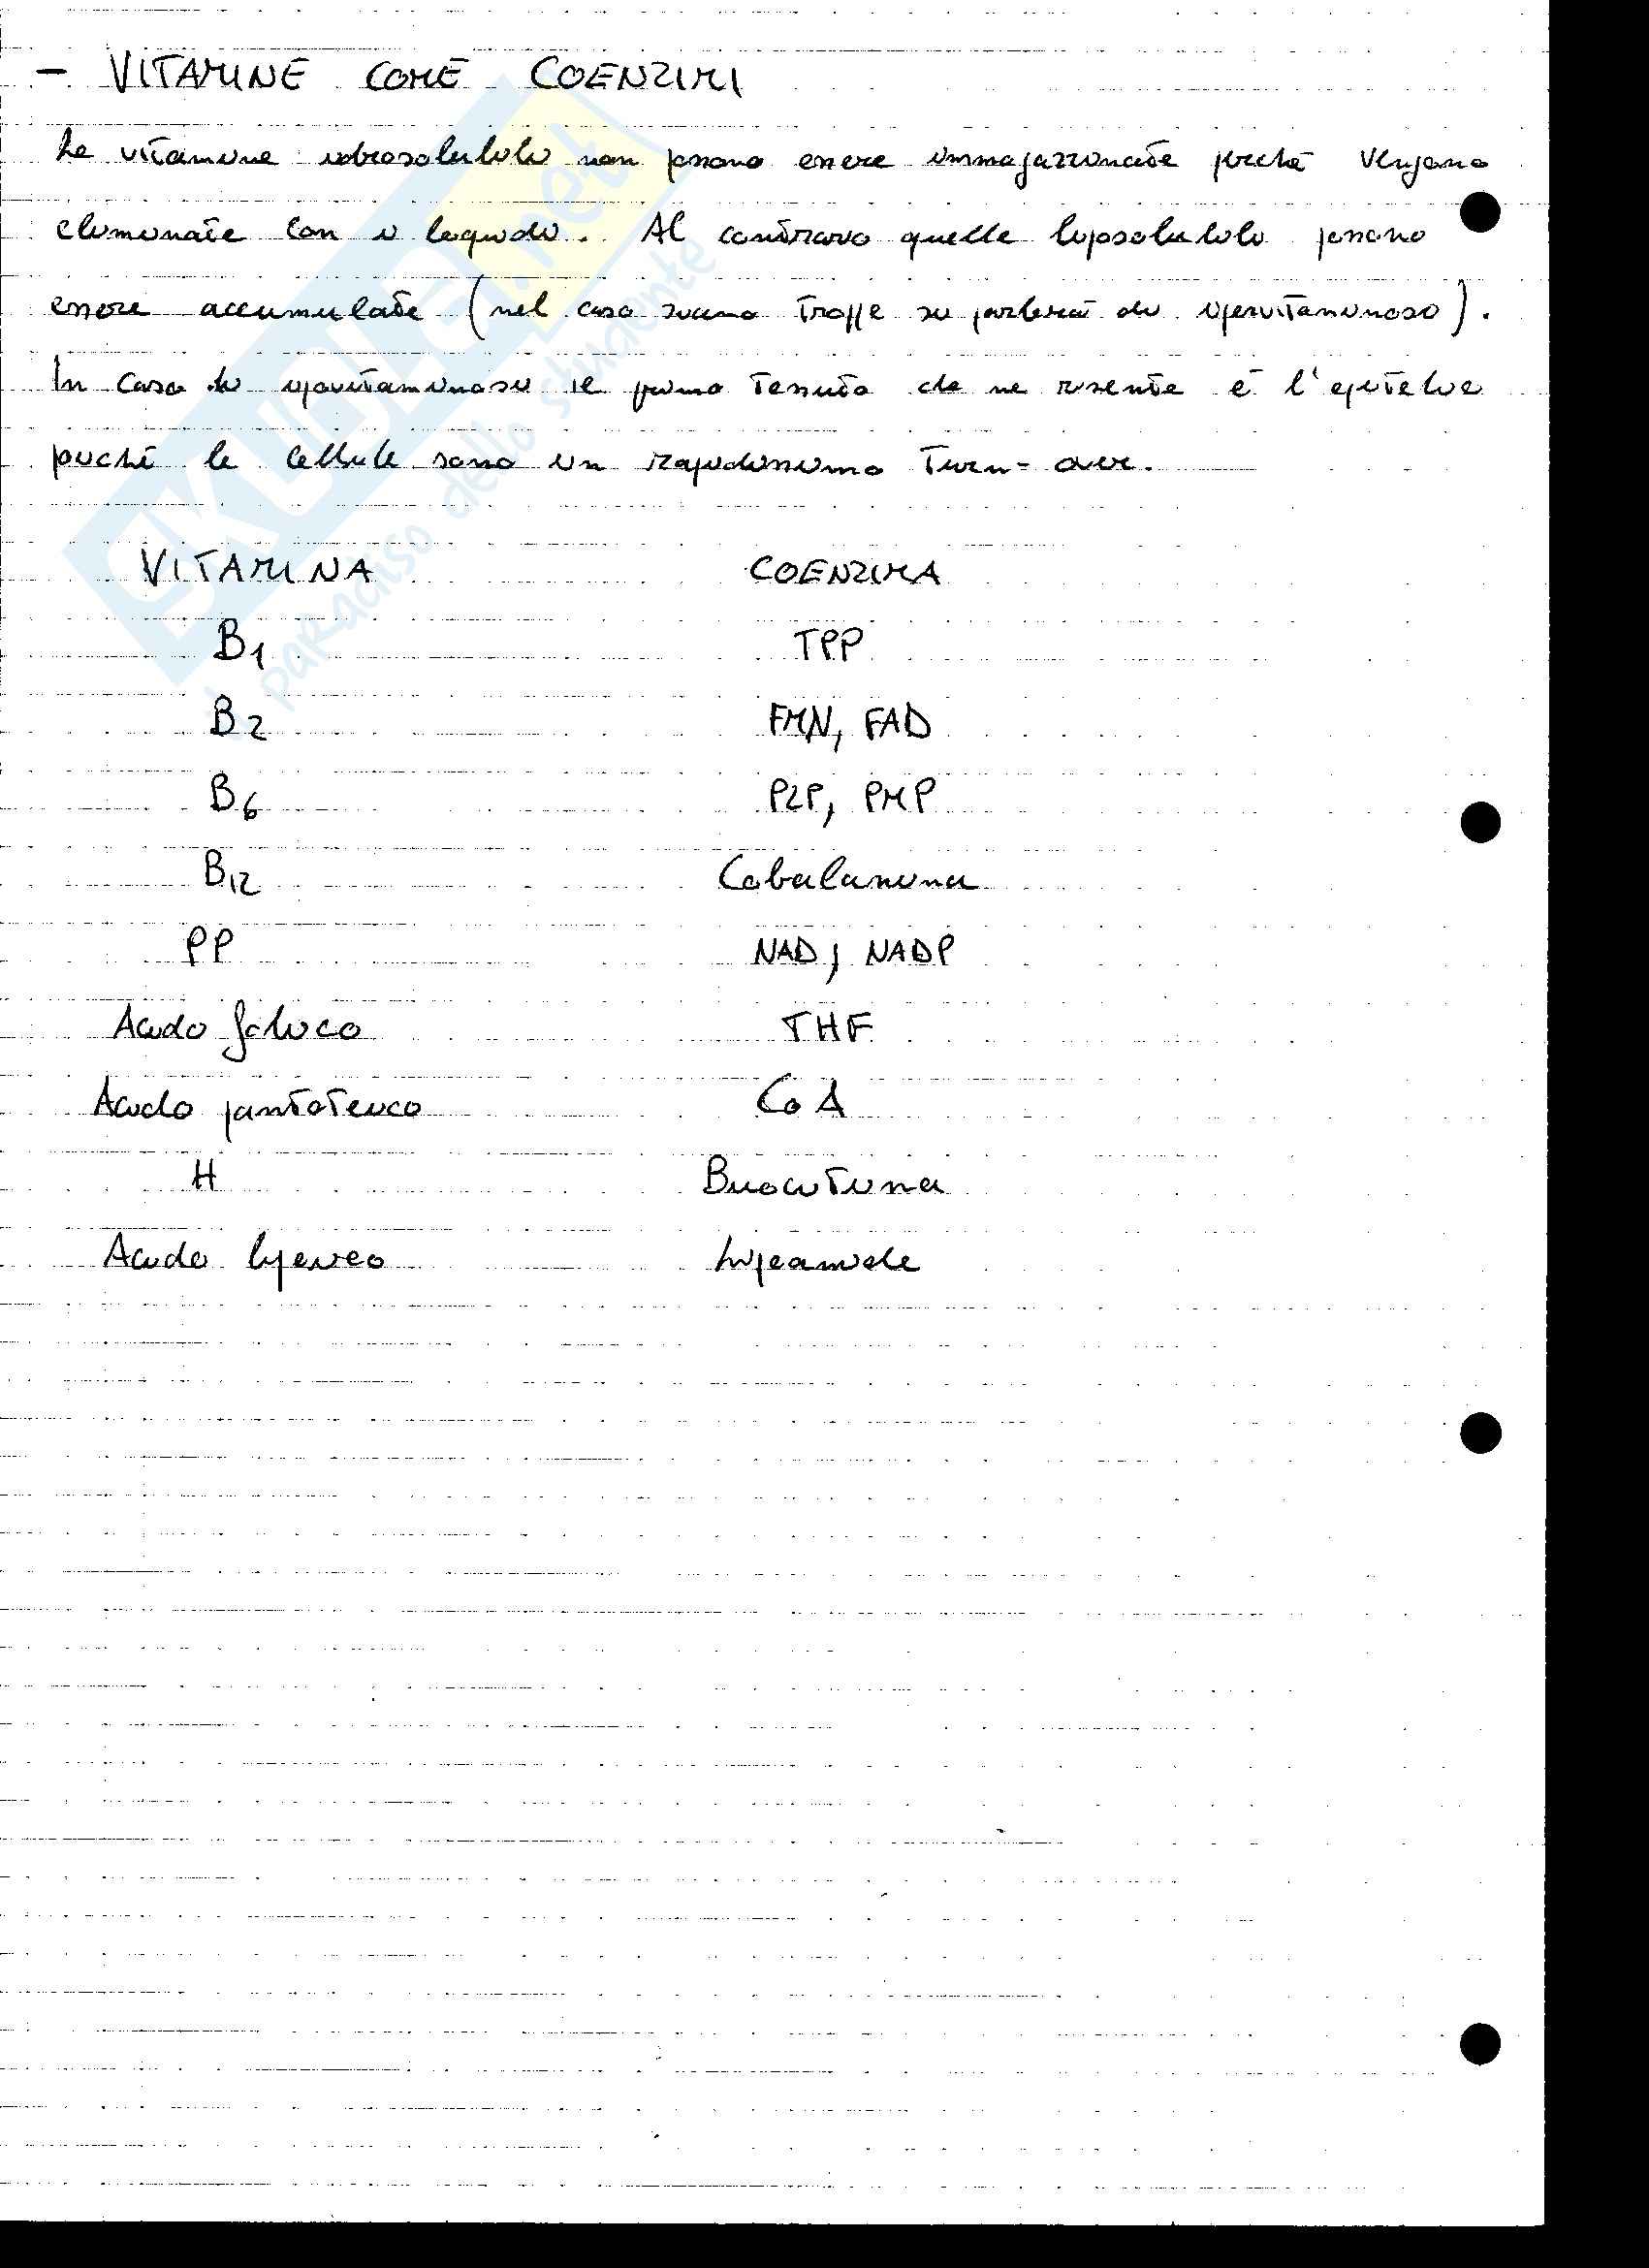 - VITAMINE COME COENZIMI
Le vitamine idrosolubili non possono essere immagazzinate perché vengono
eliminate con i liquidi. Al contrario quelle liposolubili possono
essere accumulate (nel caso siano troppe si parlerà di ipervitaminosi).
In caso di ipovitaminosi il primo tessuto che ne risente è l'epitelio
poiché le cellule sono in rapidissimo turn-over.
VITAMINA COENZIMA
B1 TPP
B2 FMN, FAD
B6 PLP, PMP
B12 Cobalamina
PP NAD, NADP
Acido folico THF
Acido pantotenico CoA
H Biocitina
Acido lipoico Lipoamide
SKUOLA.net
paradiso dello studente